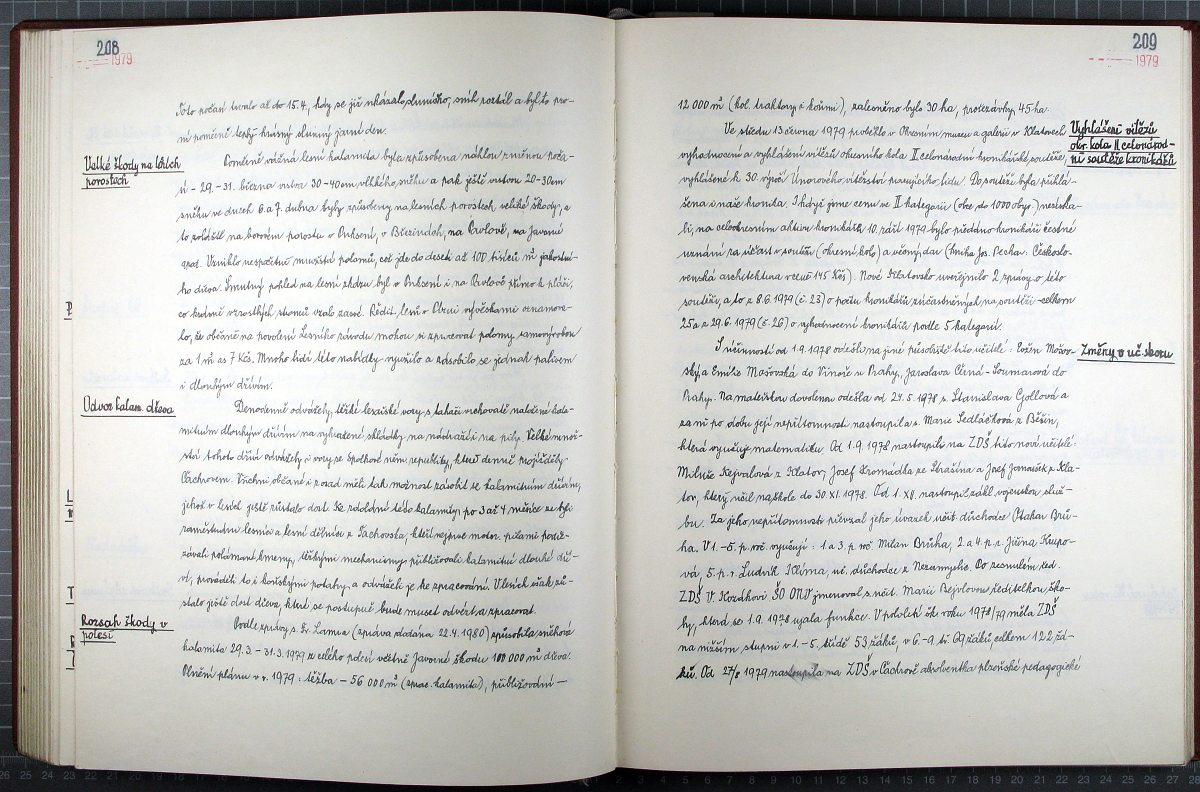 208
1979
Toto počasí trvalo až do 15.4., kdy se již ukázalo sluníčko, sníh roztál a byl to pro-
ní poměrně teplý krásný slunný jarní den.
Velké škody na lesích
porostech
Poměrně vážná lesní kalamita byla způsobena náhlou změnou poča-
sí - 29.-31. března vrstva 30-40 cm vlhkého sněhu a pak ještě vrstvou 20-30 cm
sněhu ve dnech 6. a 7. dubna byly způsobeny na lesních porostech veliké škody, a
to zvláště na borovém porostu v Onksení, v Březindoh, na Pavlově, na Javorné
apod. Vzniklo nespočetné množství polomů, což jde do deseti až 100 tisíců m³ jakostní-
ho dřeva. Smutný pohled na lesní zkázu byl v Onksení i na Pavlově přímo k pláči,
co krásně vzrostlých stromů vzalo zasvé. Ředit. lesů v Obci vývěskami oznamova-
lo, že občané na povolení Lesního závodu mohou si zpracovat polomy samovýrobou
za 1 m³ as 7 Kčs. Mnoho lidí této nabídky využilo a zásobilo se jednak palivem
i dlouhým dřívím.
Odvoz kalam. dřeva
Dennodenně odvážely, těžké lesařské vozy s tahači vrchovatě naložené kala-
mitním dlouhým dřívím na vyhrazené skládky na nádraží i na pily. Velké množ-
ství tohoto dříví odvážely i vozy ze Spolkové něm. republiky, které denně projížděly
Čachrovem. Všichni občané i z osad měli tak možnost zásobit se kalamitním dřívím,
jehož v lesích ještě zůstalo dost. Ke zdolání této kalamity po 3 až 4 měsíce zde byli
zaměstnáni lesníci a lesní dělníci z Tachovska, kteří nejprve motor. pilami podře-
závali polámané kmeny, těžkými mechanismy přibližovali kalamitní dlouhé dří-
ví, prováděli to i koňskými potahy a odváželi je ke zpracování. V lesích však zů-
stalo ještě dost dřeva, které se postupně bude muset odvézt a zpracovat.
Rozsah škody v
polesí
Podle zprávy s. Fr. Lamra (zpráva podána 22.4.1980) způsobila sněhová
kalamita 29.3.-31.3.1979 z celého polesí včetně Javorné škodu 100 000 m³ dřeva.
Plnění plánu v r. 1979: těžba - 56 000 m³ (zprac. kalamita), přibližování -
209
1979
12 000 m³ (kol. traktory i koňmi), zalesněno bylo 30 ha, prořezávky 45 ha.
Vyhlášení vítězů
okr. kola II. celonárod-
ní soutěže kronikářů
Ve středu 13. června 1979 proběhlo v Okresním muzeu a galerii v Klatovech
vyhodnocení a vyhlášení vítězů okresního kola II. celonárodní kronikářské soutěže,
vyhlášené k 30. výročí Únorového vítězství pracujícího lidu. Do soutěže byla přihlá-
šena i naše kronika. I když jsme cenu ve II. kategorii (obce do 1000 obyv.) nezíska-
li, na celookresním aktivu kronikářů 10. září 1979 bylo předáno kronikáři čestné
uznání za účast v soutěži (okresní kolo) a věcný dar (kniha Jos. Pechar: Českoslo-
venská architektura v ceně 145 Kčs). Nové Klatovsko uveřejnilo 2 zprávy o této
soutěži, a to z 8.6.1979 (č. 23) o počtu kronikářů zúčastněných na soutěži - celkem
25 a z 29.6.1979 (č. 26) o vyhodnocení kronikářů podle 5 kategorií.
Změny v uč. sboru
S účinností od 1.9.1978 odešli na jiné působiště tito učitelé: Evžen Mošov-
ský a Emilie Mošovská do Vinoře u Prahy, Jaroslava Černá-Soumarová do
Prahy. Na mateřskou dovolenou odešla od 24.5.1978 s. Stanislava Gollová a
za ni po dobu její nepřítomnosti nastoupila s. Marie Sedláčková z Běšin,
která vyučuje matematiku. Od 1.9.1978 nastoupili na ZDŠ tito noví učitelé:
Miluše Rejvalová z Klatov, Josef Hromádka ze Strážína a Josef Janoušek z Kla-
tov, který učil na škole do 30.XI.1978. Od 1.XII. nastoupil zákl. vojenskou služ-
bu. Za jeho nepřítomnosti převzal jeho úvazek učit. důchodce Otakar Brů-
ha. V 1.-5. p. roč. vyučují: 1. a 3. p. roč. Milan Brůha, 2. a 4. p. r. Jiřina Krupo-
vá, 5. p. r. Ludvík Klíma, uč. důchodce z Nezamyslic. Po zesnulém řed.
ZDŠ V. Kozákovi ŠO ONV jmenoval s. učit. Marii Bejvlovou ředitelkou ško-
ly, která se 1.9.1978 ujala funkce. V pololetí šk. roku 1978/79 měla ZDŠ
na nižším stupni v 1.-5. třídě 53 žáků, v 6.-9. tř. 69 žáků, celkem 122 žá-
ků. Od 27/8 1979 nastoupila na ZDŠ v Čachrově absolventka plzeňské pedagogické